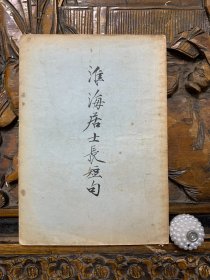 淮海居士長短句